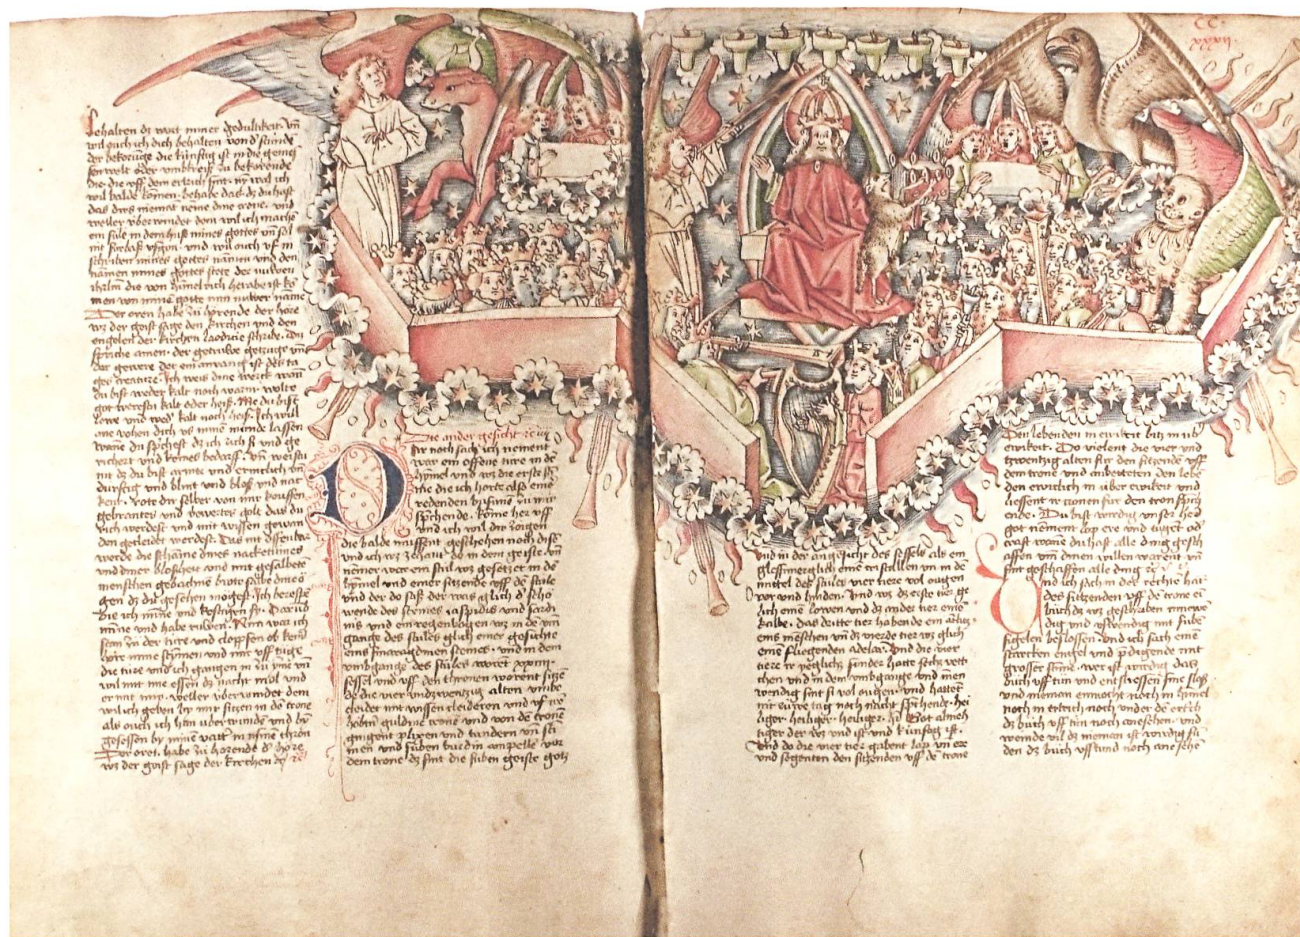 behalten dz wort miner gedultikeit vn̄
wil ouch ich dich behalten von d stunde
der bekorūge die kunftig ist in die gemei
die die vff dem ertrich sint ny wil ich
wil balde komen behalt das dz du hast
das dins nieman neme dine crone vnd
weller vberwindet den wil ich machē
ein sule in dem huse mines gottes vn̄ sol
nit fürbas vsgon vnd wil ouch vf in
schriben mines gottes namen vnd den
namen mines gottes stete der nuwen
ihrlm̄ die von himel rich herabe ist ko
men von minē gotte min nuwer name
Der oren habe zu hörende der höre
wz der geist sage den kirchen vnd den
engelen der kirchen laodicie schribe
spriche amen der getruwe gezuge vn̄
der gewere der ein anvang ist
ger creature Ich weis dine werck wan̄
du bist weder kalt noch warm wolte
got werestu kalt oder heis Me du bist
lowe vnd wed kalt noch heis Ich wil
ane vohen dich vs minē munde lassen
wane du sprichest dz ich rich si vnd ge
richert vnd keines bedarf vn̄ weistu
nit dz du bist arme vnd ermlich vn̄
durftig vnd blint vnd blos vnd nac
kent Ich rote dir selber von mir
gebrantes vnd bewertes golt das du
rich werdest vnd mit wissen gewan
den gecleidet werdest Das nit offenbar
werde die schāme dines nackentumes
Die ich minne vnd kestigen sy Darūb
minne vnd habe ruwen Nym war ich
ston zu der türe vnd clopffen ob iem
höre mine stymen vnd mir vff tuge
die türe vnd ich gangen in zu ym vn̄
wil mit ime essen dz nacht mol vnd
er mit mir weller vberwindet dem
wil ich geben by mir sitzen in de trone
als ouch ich han vberwunden vnd bin
gesessen by minē vatt in sinem thrōn
Der oren habe zu horende d hore
wz der geist sage der kirchen
Die ander gesicht
Dir noch sach ich nement
war ein offene türe in de
hymel vnd wz die erste sti
me die ich horte als eine
redenden busunē zu mir
sprechende kome her vff
vnd ich wil dir zoigen
die balde müssent geschehen noch dise
vnd ich wz zehant do in dem geiste vn̄
nemer war ein stul wz gesetzet in de
hymel vnd einer sitzende vff de stule
vnd der do sas der was glich d scho
wende des steines iaspidis vnd sardi
nis vnd ein regenbogen wz in de vm̄
gange des stules glich einer gesichte
eins smaragdinen steines vnd in dem
vmbgange des stules woret xxiiii
sessel vnd vff den thronen worent sitze
de die vier vnd zwentzig alten vmbe
cleidet mit wissen cleideren vnd vf irē
höbtē guldine crone vnd von de tronē
giengent plixen vnd tundern vn̄ sti
men vnd süben burdin ampelle vor
dem trone dz sint die siben geiste gotz
CC
xxxii
vnd in der angesicht des sessels als ein
mittel des stules vier tiere vol ougen
vor vnd hinden vnd wz dz erste tier ge
lich eime löwen vnd dz ander tier eime
kalbe das dritte tier habende ein antlitz
eins mēschen vn̄ dz vierde tier wz glich
eime fliegenden adelar vnd die vier
tiere ir yeglichs sunder hatte sechs vett
chen vnd in dem vmbgange vnd inen
wendig sint si vol ougen vnd hattent
nit ruwe tag noch nacht sprechende hei
liger heiliger heiliger h Got almeh
tiger der wz vnd ist vnd künftig ist
vnd do die vier tier gabent lop vn̄ ere
vnd segenten den sitzenden vff de trone
Den lebenden in ewikeit bitz in ir
ewikeit Do vielent die vier vnd
zwentzig alten für den sitzende vff
dem trone vnd anbettoten den leb
den ewclich in iller ewikeit vnd
liessent ir cronen für den tron sprch
ende Du bist wirdig vnser her
got nēment lop ere vnd tuget od
craft wane du hast alle ding gesch
affen vn̄ dinen willen warent vn̄
sint geschaffen alle ding
Vnd ich sach in der rechte hat
des sitzenden vff de trone ei
buch dz wz geschriben innewē
dig vnd vswendig mit sube
sigelen beslossen vnd ich sach eine
starcken engel vnd predigende mit
grosser stime wer ist wirdig daz
buch vff tun vnd entsliessen sine slos
vnd nieman enmocht noch in himel
noch in ertrich noch vnder de ertrich
dz buch vff tun noch anesehen vnd
weinde vil dz nieman ist wirdig fu
den dz buch vfftund noch ane sehe